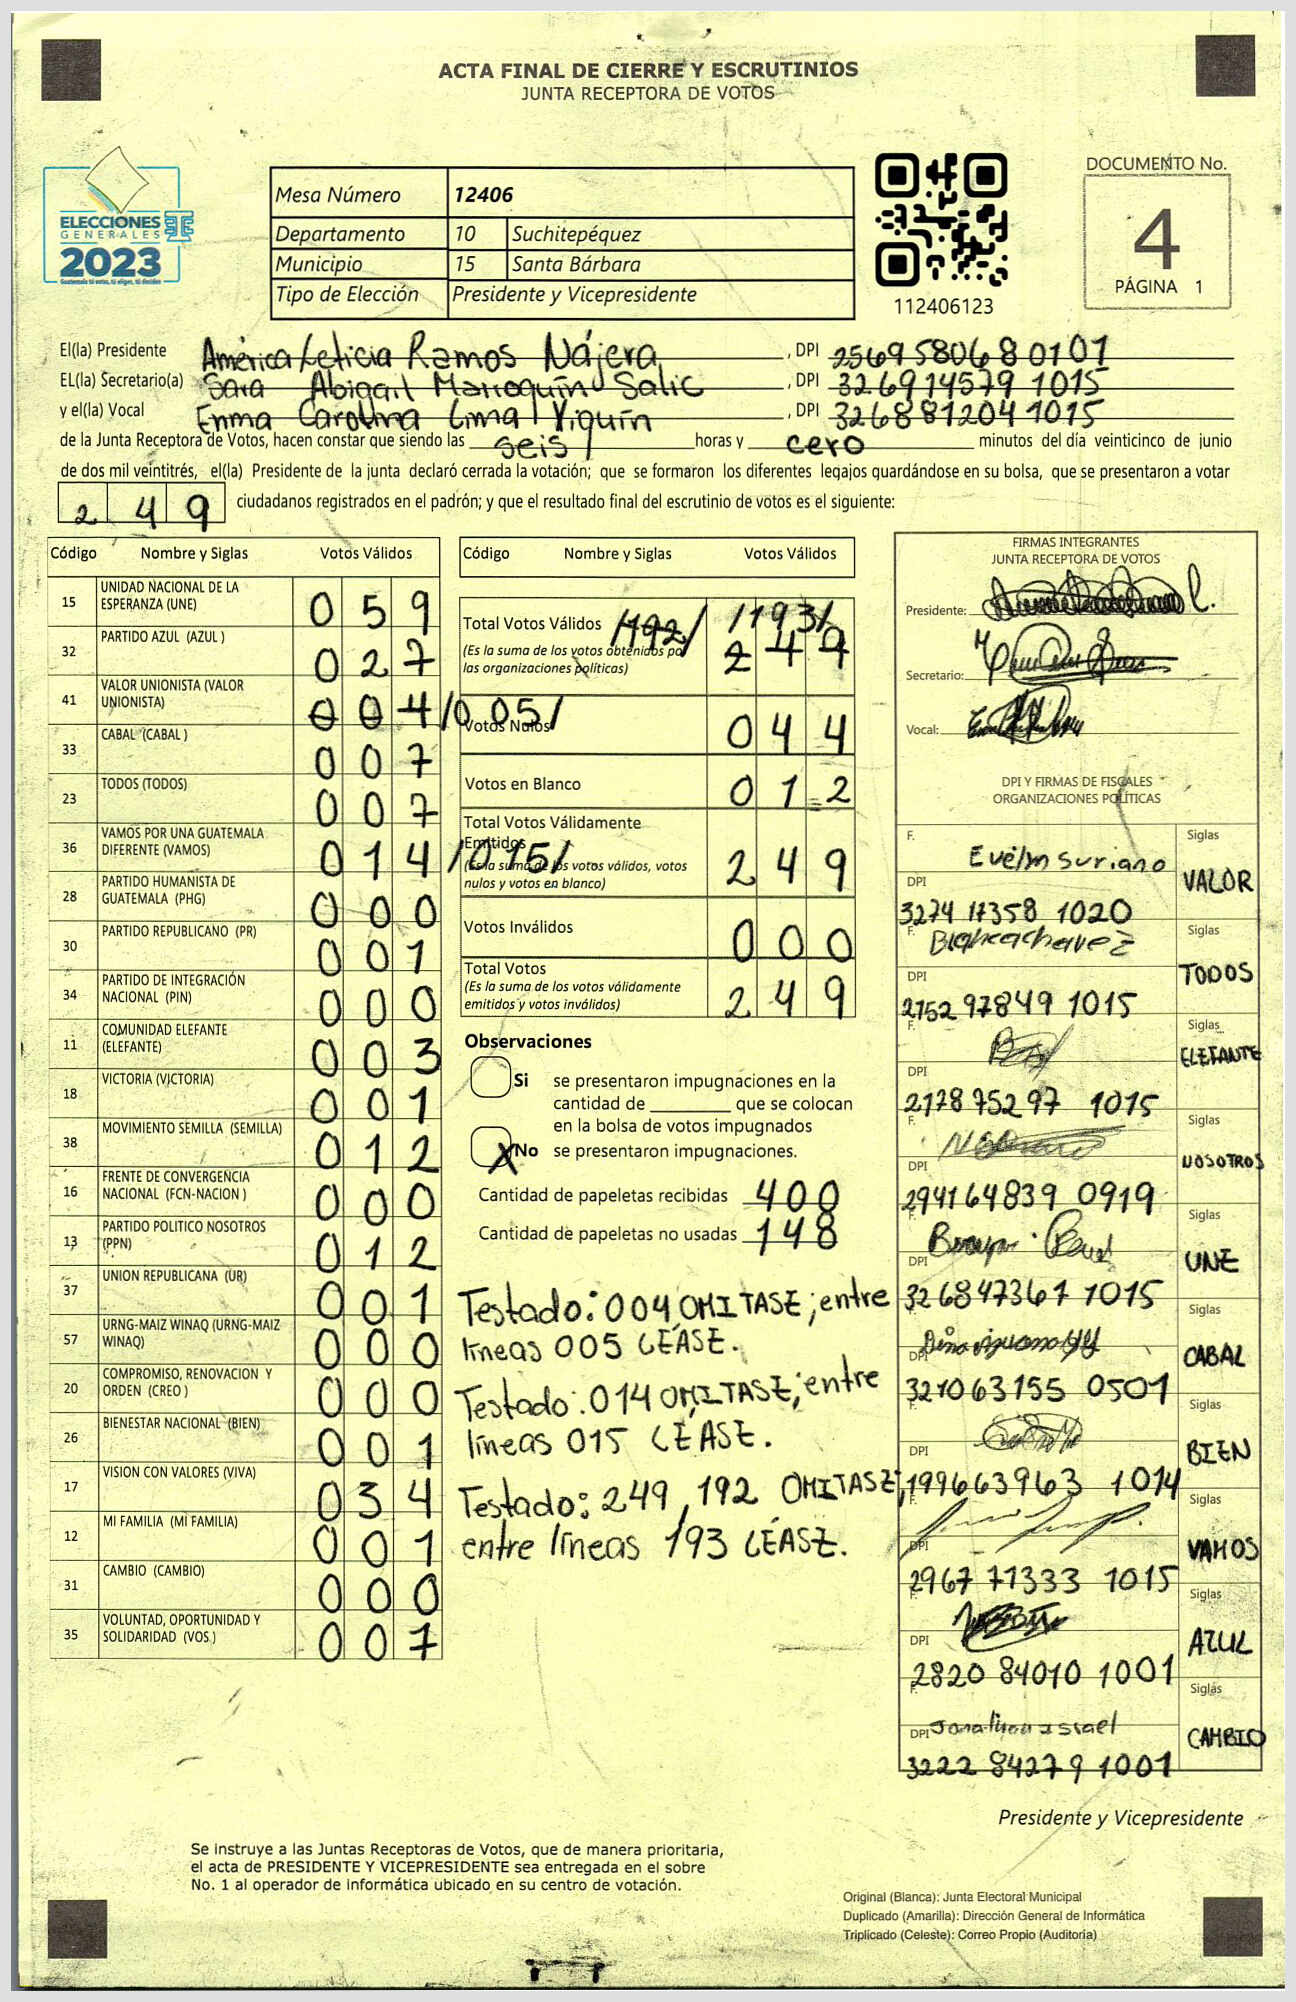 ACTA FINAL DE CIERRE Y ESCRUTINIOS
JUNTA RECEPTORA DE VOTOS
ELECCIONES
GENERALES
2023
Guatemala tú votas, tú eliges, tú decides
Mesa Número 12406
Departamento 10 Suchitepéquez
Municipio 15 Santa Bárbara
Tipo de Elección Presidente y Vicepresidente
112406123
DOCUMENTO No.
4
PÁGINA 1
El(la) Presidente América Leticia Ramos Nájera, DPI 2569 58068 0101
EL(la) Secretario(a) Sara Abigail Marroquín Salic, DPI 3269 14579 1015
y el(la) Vocal Enma Carolina Lima Yiquín, DPI 3268 81204 1015
de la Junta Receptora de Votos, hacen constar que siendo las seis horas y cero minutos del día veinticinco de junio
de dos mil veintitrés, el(la) Presidente de la junta declaró cerrada la votación; que se formaron los diferentes legajos quardándose en su bolsa, que se presentaron a votar
249 ciudadanos registrados en el padrón; y que el resultado final del escrutinio de votos es el siguiente:
Código Nombre y Siglas Votos Válidos
15 UNIDAD NACIONAL DE LA ESPERANZA (UNE) 059
32 PARTIDO AZUL (AZUL ) 027
41 VALOR UNIONISTA (VALOR UNIONISTA) 004 /005/
33 CABAL (CABAL ) 007
23 TODOS (TODOS) 007
36 VAMOS POR UNA GUATEMALA DIFERENTE (VAMOS) 014 /015/
28 PARTIDO HUMANISTA DE GUATEMALA (PHG) 000
30 PARTIDO REPUBLICANO (PR) 001
34 PARTIDO DE INTEGRACIÓN NACIONAL (PIN) 000
11 COMUNIDAD ELEFANTE (ELEFANTE) 003
18 VICTORIA (VICTORIA) 001
38 MOVIMIENTO SEMILLA (SEMILLA) 012
16 FRENTE DE CONVERGENCIA NACIONAL (FCN-NACION ) 000
13 PARTIDO POLITICO NOSOTROS (PPN) 012
37 UNION REPUBLICANA (UR) 001
57 URNG-MAIZ WINAQ (URNG-MAIZ WINAQ) 000
20 COMPROMISO, RENOVACION Y ORDEN (CREO ) 000
26 BIENESTAR NACIONAL (BIEN) 001
17 VISION CON VALORES (VIVA) 034
12 MI FAMILIA (MI FAMILIA) 001
31 CAMBIO (CAMBIO) 000
35 VOLUNTAD, OPORTUNIDAD Y SOLIDARIDAD (VOS ) 007
Código Nombre y Siglas Votos Válidos
Total Votos Válidos /192/ /193/ 249
(Es la suma de los votos obtenidos por las organizaciones políticas)
Votos Nulos 044
Votos en Blanco 012
Total Votos Válidamente Emitidos 249
(Es la suma de los votos válidos, votos nulos y votos en blanco)
Votos Inválidos 000
Total Votos 249
(Es la suma de los votos válidamente emitidos y votos inválidos)
Observaciones
Si se presentaron impugnaciones en la
cantidad de ________ que se colocan
en la bolsa de votos impugnados
X No se presentaron impugnaciones.
Cantidad de papeletas recibidas 400
Cantidad de papeletas no usadas 148
Testado: 004 OMITASE; entre
líneas 005 LÉASE.
Testado: 014 OMITASE; entre
líneas 015 LÉASE.
Testado: 249, 192 OMITASE;
entre líneas 193 LÉASE.
FIRMAS INTEGRANTES
JUNTA RECEPTORA DE VOTOS
Presidente:
Secretario:
Vocal:
DPI Y FIRMAS DE FISCALES
ORGANIZACIONES POLÍTICAS
F. Evelyn Suriano Siglas VALOR
DPI 3274 17358 1020
F. Blanca Chavez Siglas TODOS
DPI 2752 97849 1015
F. Siglas ELEFANTE
DPI 2178 75297 1015
F. Siglas NOSOTROS
DPI 2941 64839 0919
F. Siglas UNE
DPI 3268 47361 1015
F. Siglas CABAL
DPI 3210 63155 0501
F. Siglas BIEN
DPI 1996 63963 1014
F. Siglas VAMOS
DPI 2967 71333 1015
F. Siglas AZUL
DPI 2820 84010 1001
F. Jonathan Israel Siglas CAMBIO
DPI 3222 84279 1001
Presidente y Vicepresidente
Se instruye a las Juntas Receptoras de Votos, que de manera prioritaria,
el acta de PRESIDENTE Y VICEPRESIDENTE sea entregada en el sobre
No. 1 al operador de informática ubicado en su centro de votación.
Original (Blanca): Junta Electoral Municipal
Duplicado (Amarilla): Dirección General de Informática
Triplicado (Celeste): Correo Propio (Auditoría)